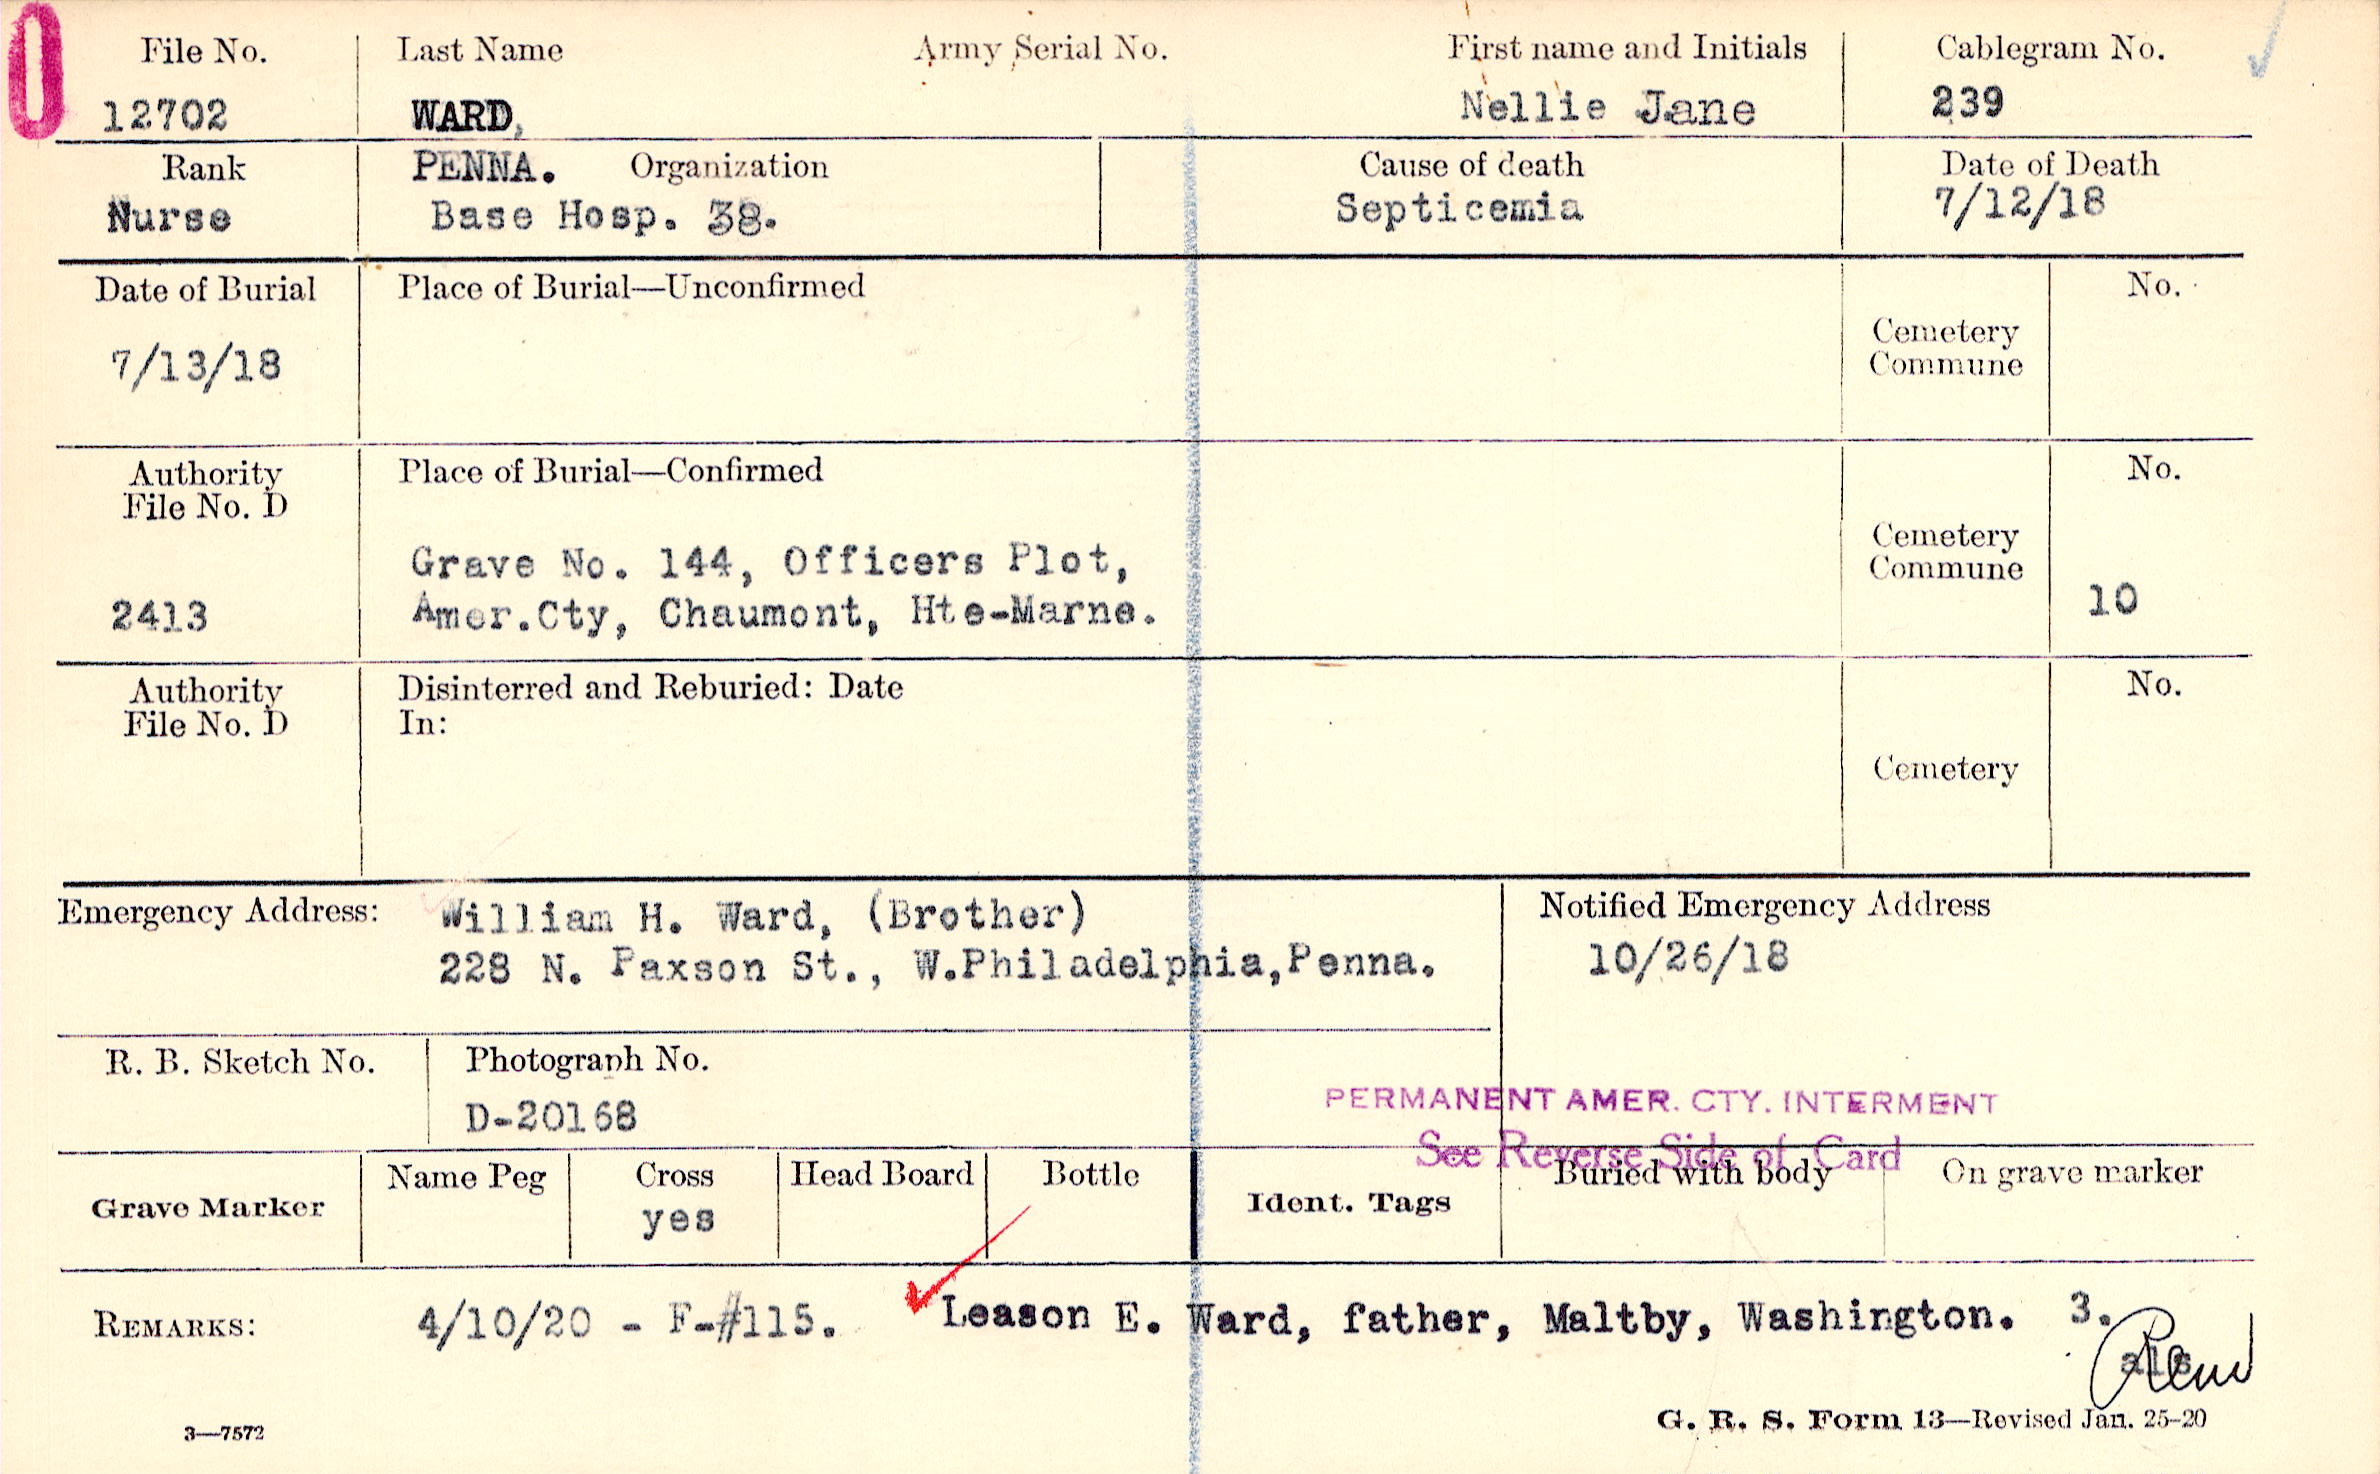 0
File No. Last Name Army Serial No. First name and Initials Cablegram No.
12702 WARD, Nellie Jane 239
Rank PENNA. Organization Cause of death Date of Death
Nurse Base Hosp. 38. Septicemia 7/12/18
Date of Burial Place of Burial—Unconfirmed No.
Cemetery
Commune
7/13/18
Authority Place of Burial—Confirmed No.
File No. D
Cemetery
Grave No. 144, Officers Plot, Commune
2413 Amer.Cty, Chaumont, Hte-Marne. 10
Authority Disinterred and Reburied: Date No.
File No. D In:
Cemetery
Emergency Address: William H. Ward, (Brother) Notified Emergency Address
228 N. Paxson St., W.Philadelphia,Penna. 10/26/18
R. B. Sketch No. Photograph No.
D-20168
PERMANENT AMER. CTY. INTERMENT
See Reverse Side of Card
Grave Marker Name Peg Cross Head Board Bottle Ident. Tags Buried with body On grave marker
yes
REMARKS: 4/10/20 - F-#115. Leason E. Ward, father, Maltby, Washington. 3.
3—7572 G. R. S. Form 13—Revised Jan. 25-20